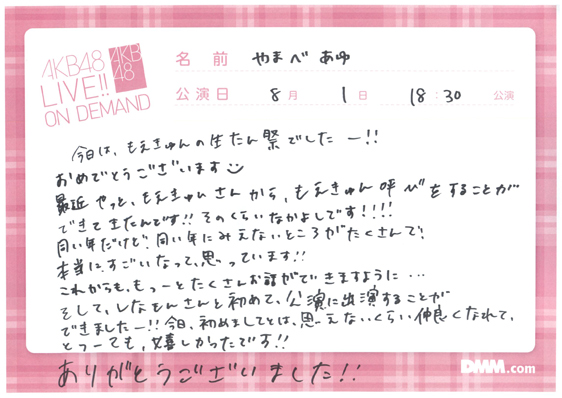 AKB48
LIVE!!
ON DEMAND
AKB
48
名前 やまべ あゆ
公演日 8月 1日 18:30 公演
今日は、もえきゅんの生たん祭でしたー!!
おめでとうございます
最近やっと、もえきゅんさんから、もえきゅん呼びをすることが
できてきたんです!! そのくらいなかよしです!!!!
同い年だけど、同い年にみえないところがたくさんで、
本当にすごいなって、思っています!!
これからも、もっーとたくさんお話ができますように…
そして、しなもんさんと初めて、公演に出演することが
できましたー!! 今日、初めましてとは、思えないくらい仲良くなれて、
とっーても、嬉しかったです!!
ありがとうございました!!
DMM.com